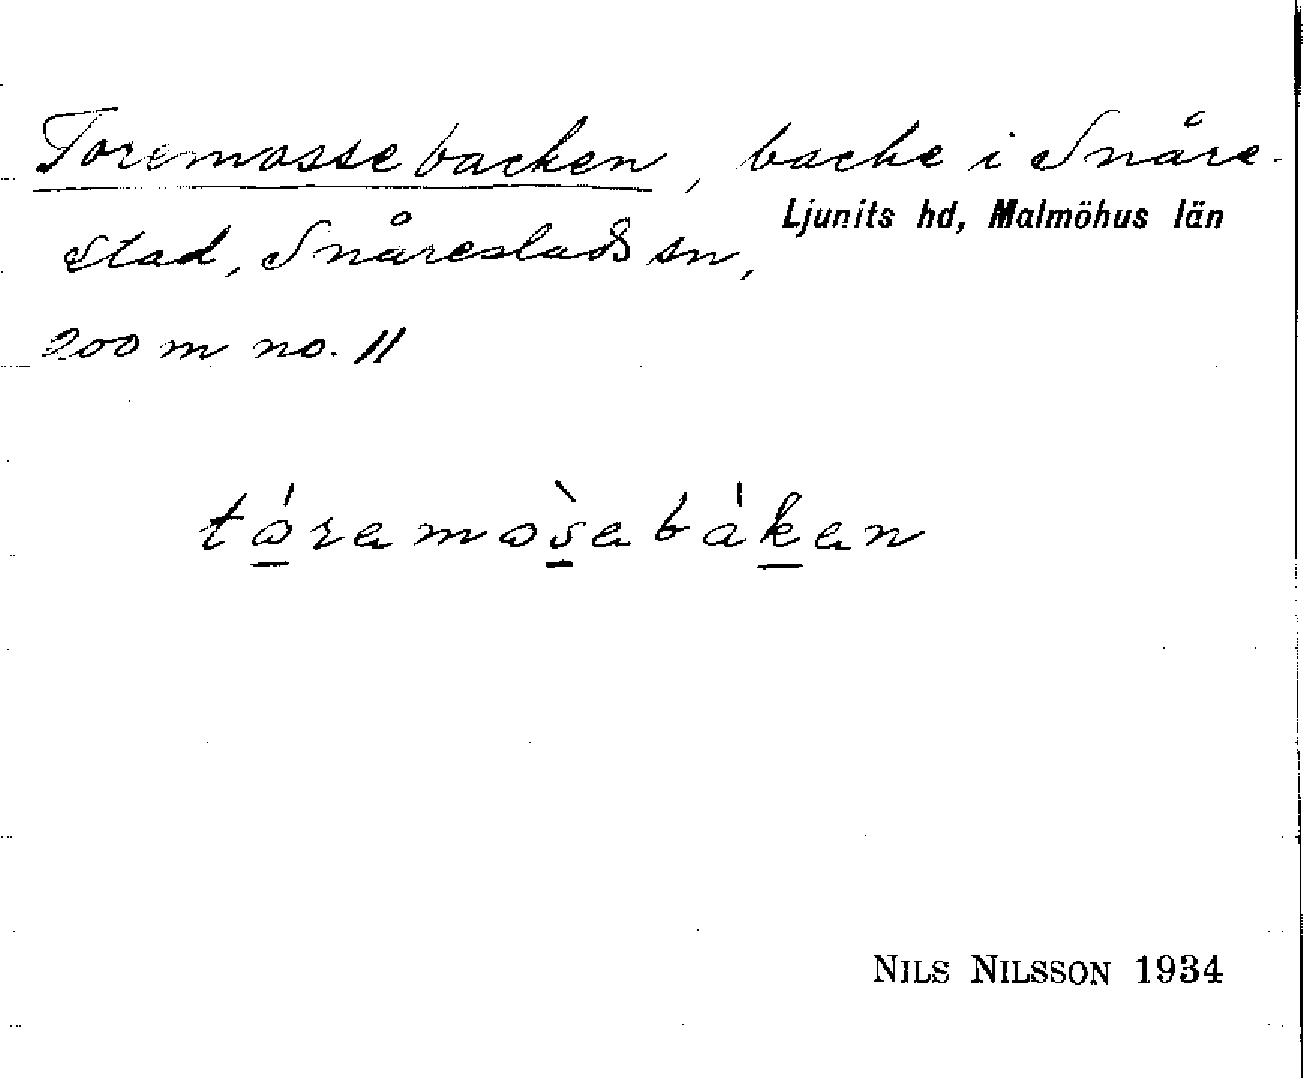 Toremossebacken, backe i Snåre-
Ljunits hd, Malmöhus län
stad, Snårestads sn,
200 m no. 11
tóramòsabákan
NILS NILSSON 1934